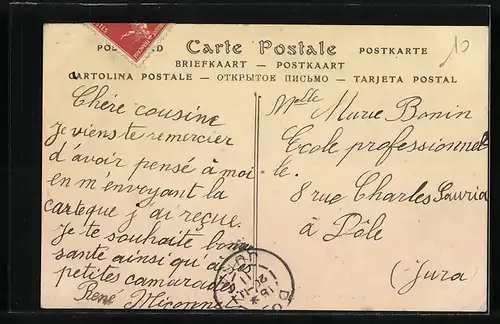 Carte Postale
POSTKARTE
BRIEFKAART — POSTKAART
CARTOLINA POSTALE — ОТКРЫТОЕ ПИСЬМО — TARJETA POSTAL
10
Chère cousine
Je viens te remercier
d'avoir pensé à moi
en m'envoyant la
carte que j'ai reçue.
Je te souhaite bonne
santé ainsi qu'à
petites camarades
René
Mlle Marie Bonin
Ecole professionnel
le.
8 rue Charles Sauria
à Dôle
(Jura)